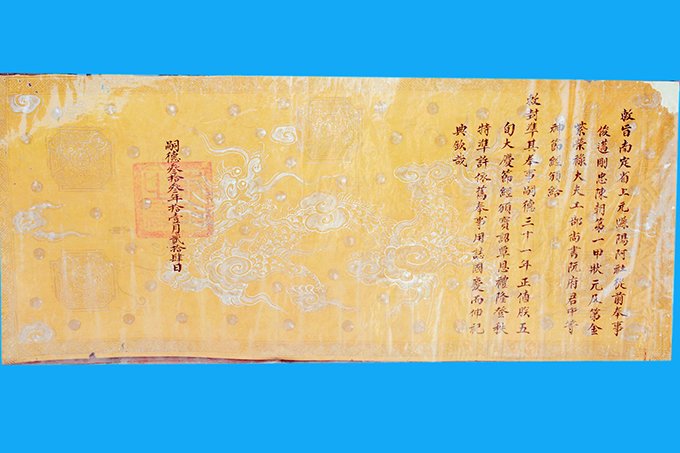 敕旨南定省上元縣陽阿社從前奉事
俊邁剛忠陳朝第一甲狀元及第金
紫榮祿大夫工部尚書阮府君中等
神節經頒給
敕封準其奉事嗣德三十一年正值朕五
旬大慶節經頒寶詔覃恩禮隆登秩
特準許依舊奉事用誌國慶而伸祀
典欽哉
嗣德叄拾叄年拾壹月貳拾肆日